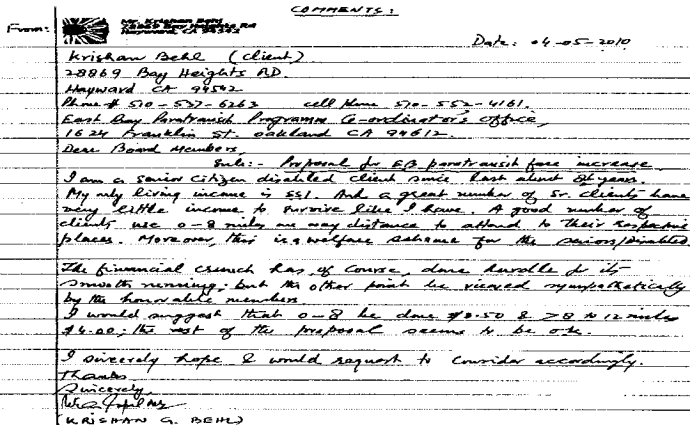 COMMENTS:
From: Mr. Krishan Behl
28869 Bay Heights Rd
Hayward, CA 94542
Date: 04-05-2010
Krishan Behl (client)
28869 Bay Heights RD.
Hayward CA 94542
Phone # 510-537-6263 cell phone 510-552-4161.
East Bay Paratransit Programme Co-ordinator's office,
1624 Franklin St. Oakland CA 94612.
Dear Board Members,
Sub:- Proposal for EB paratransit fare increase
I am a senior citizen disabled client since last about years.
My only living income is SSI. And a great number of Sr. clients have
very little income to survive like I have. A good number of
clients use 0-8 miles one way distance to attend to their respective
places. Moreover, this is a welfare scheme for the seniors/disabled.
The financial crunch has, of course, done hurdle for its
smooth running; but the other point be viewed sympathetically
by the honorable members.
I would suggest that 0-8 be done $3.50 & >8 to 12 miles
$4.00; the rest of the proposal seems to be o.k.
I sincerely hope & would request to consider accordingly.
Thanks
Sincerely,
(KRISHAN G. BEHL)